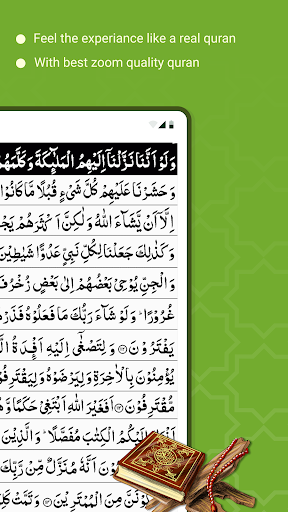 Feel the experiance like a real quran
With best zoom quality quran
وَلَوْ اَنَّنَا نَزَّلْنَاۤ اِلَيْهِمُ الْمَلٰٓئِكَةَ وَكَلَّمَهُمُ
وَحَشَرْنَا عَلَيْهِمْ كُلَّ شَيْءٍ قُبُلًا مَّا كَانُوْا
اِلَّاۤ اَنْ يَّشَآءَ اللّٰهُ وَلٰكِنَّ اَكْثَرَهُمْ
وَكَذٰلِكَ جَعَلْنَا لِكُلِّ نَبِيٍّ عَدُوًّا شَيٰطِيْنَ
وَالْجِنِّ يُوْحِيْ بَعْضُهُمْ اِلٰى بَعْضٍ زُخْرُفَ
غُرُوْرًا ؕ وَلَوْ شَآءَ رَبُّكَ مَا فَعَلُوْهُ
يَفْتَرُوْنَ ۝۱۱۲ وَلِتَصْغٰۤى اِلَيْهِ اَفْـِٕدَةُ
يُؤْمِنُوْنَ بِالْاٰخِرَةِ وَلِيَرْضَوْهُ
مُّقْتَرِفُوْنَ ۝۱۱۳ اَفَغَيْرَ اللّٰهِ اَبْتَغِيْ حَكَمًا
اِلَيْكُمُ الْكِتٰبَ مُفَصَّلًا ؕ وَالَّذِيْنَ
اَنَّهٗ مُنَزَّلٌ مِّنْ رَّبِّكَ
مِنَ الْمُمْتَرِيْنَ ۝۱۱۴ وَتَمَّتْ